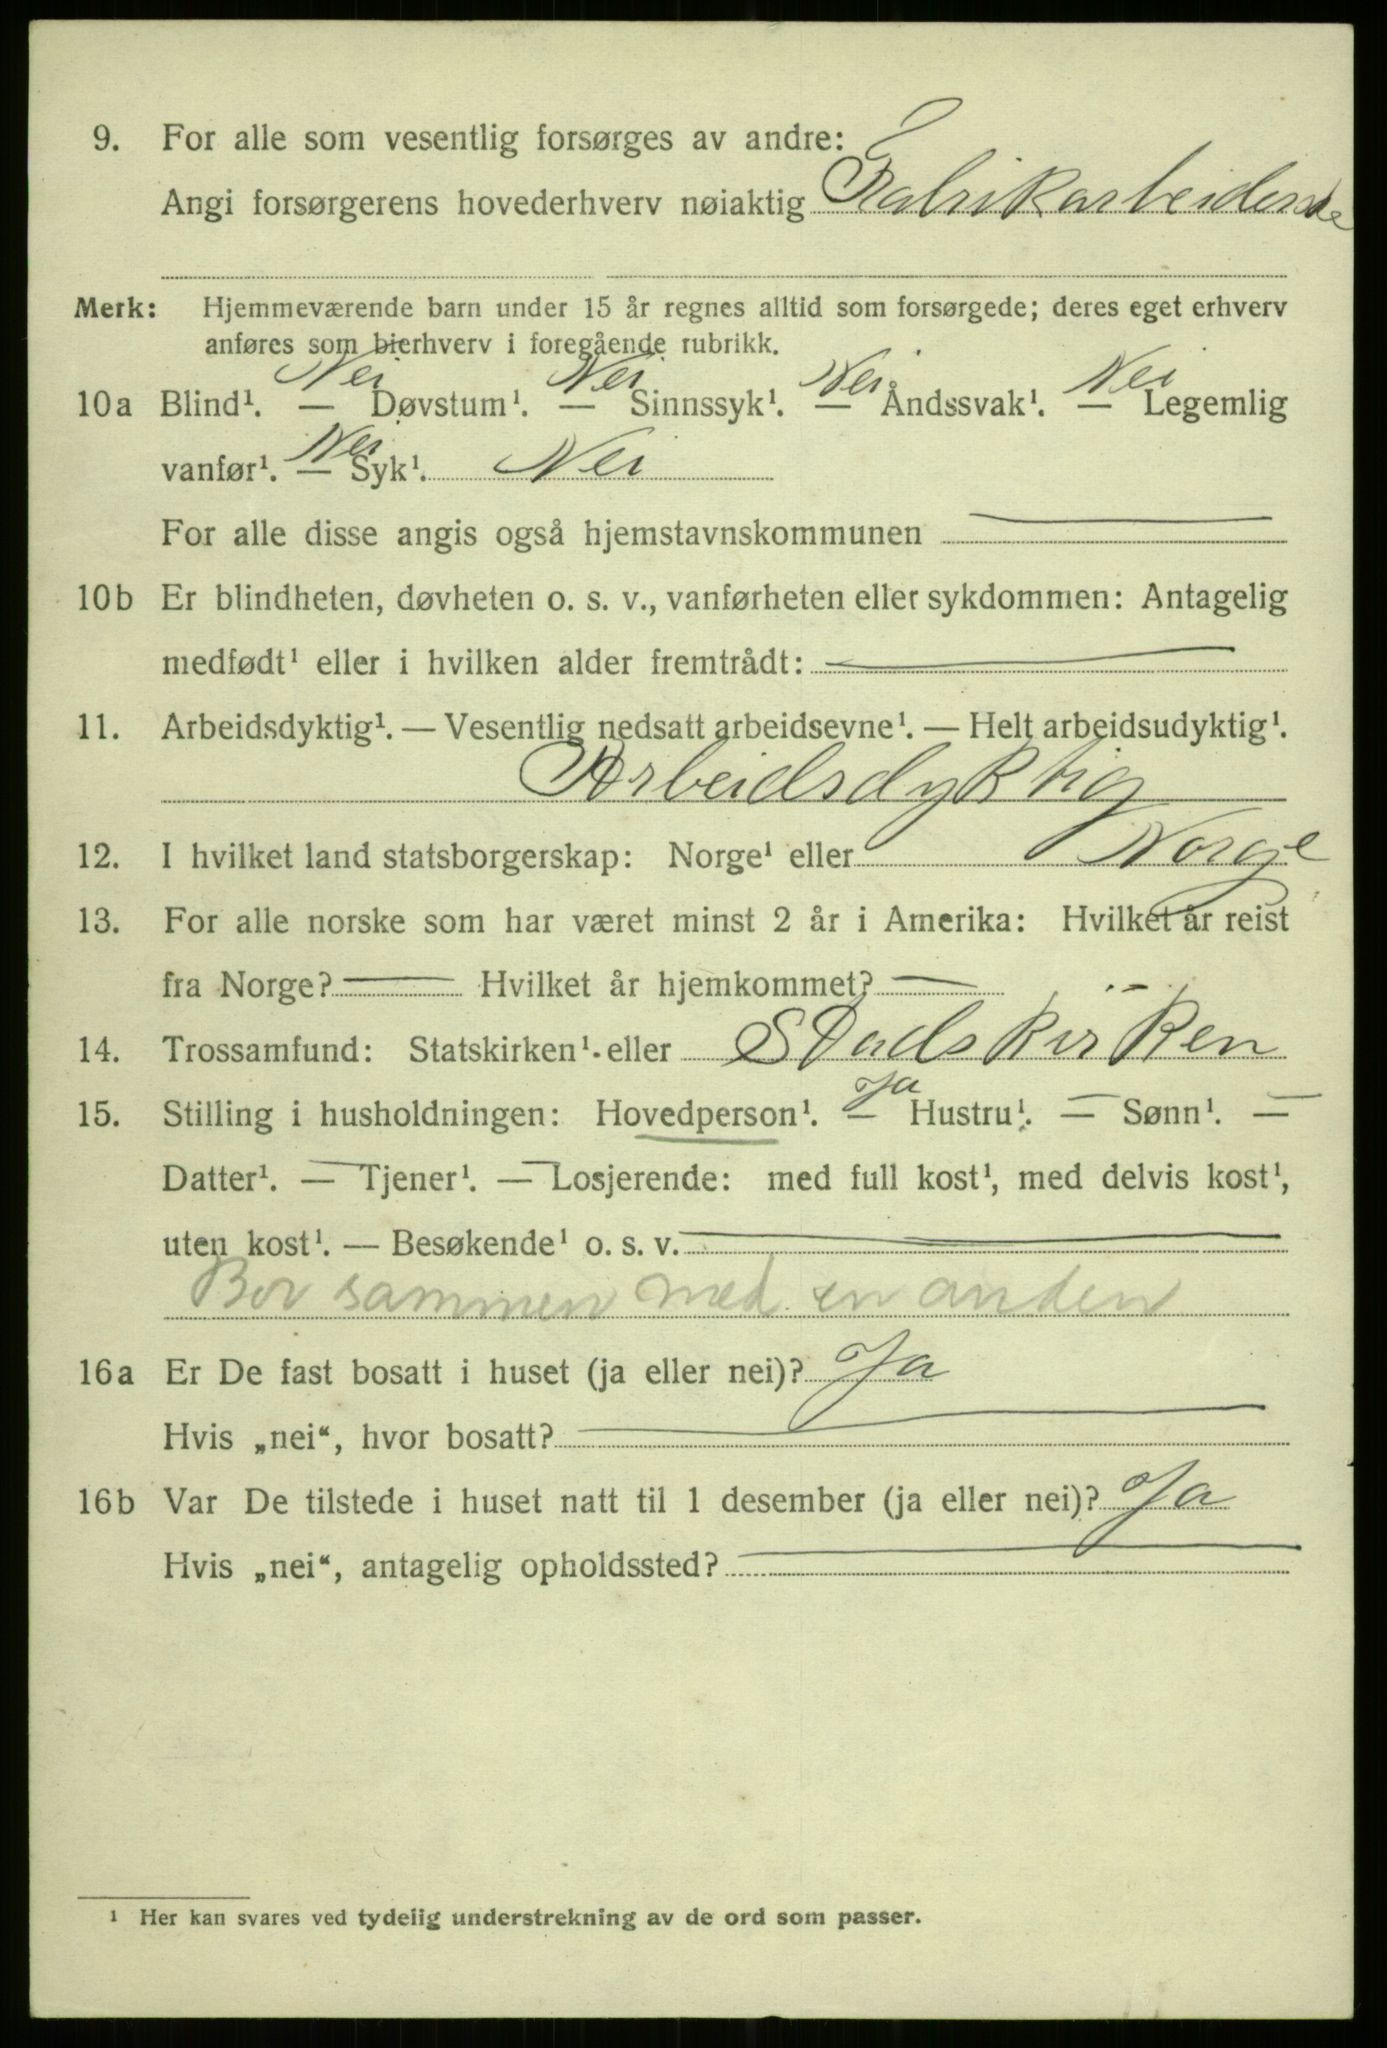 9. For alle som vesentlig forsørges av andre:
Angi forsørgerens hovederhverv nøiaktig Fabrikarbeiderske
Merk: Hjemmeværende barn under 15 år regnes alltid som forsørgede; deres eget erhverv
anføres som bierhverv i foregående rubrikk.
Nei Nei Nei Nei
10a Blind¹. — Døvstum¹. — Sinnssyk¹. — Åndssvak¹. — Legemlig
vanfør¹. Nei — Syk¹. Nei
For alle disse angis også hjemstavnskommunen —
10b Er blindheten, døvheten o. s. v., vanførheten eller sykdommen: Antagelig
medfødt¹ eller i hvilken alder fremtrådt: —
11. Arbeidsdyktig¹. — Vesentlig nedsatt arbeidsevne¹. — Helt arbeidsudyktig¹.
Arbeidsdyktig
12. I hvilket land statsborgerskap: Norge¹ eller Norge
13. For alle norske som har været minst 2 år i Amerika: Hvilket år reist
fra Norge? — Hvilket år hjemkommet? —
14. Trossamfund: Statskirken¹. eller Stadskirken
15. Stilling i husholdningen: Hovedperson¹. Ja — Hustru¹. — Sønn¹. —
Datter¹. — Tjener¹. — Losjerende: med full kost¹, med delvis kost¹,
uten kost¹. — Besøkende¹ o. s. v. —
Bor sammen med en anden
16a Er De fast bosatt i huset (ja eller nei)? Ja
Hvis „nei“, hvor bosatt? —
16b Var De tilstede i huset natt til 1 desember (ja eller nei)? Ja
Hvis „nei“, antagelig opholdssted? —
¹ Her kan svares ved tydelig understrekning av de ord som passer.